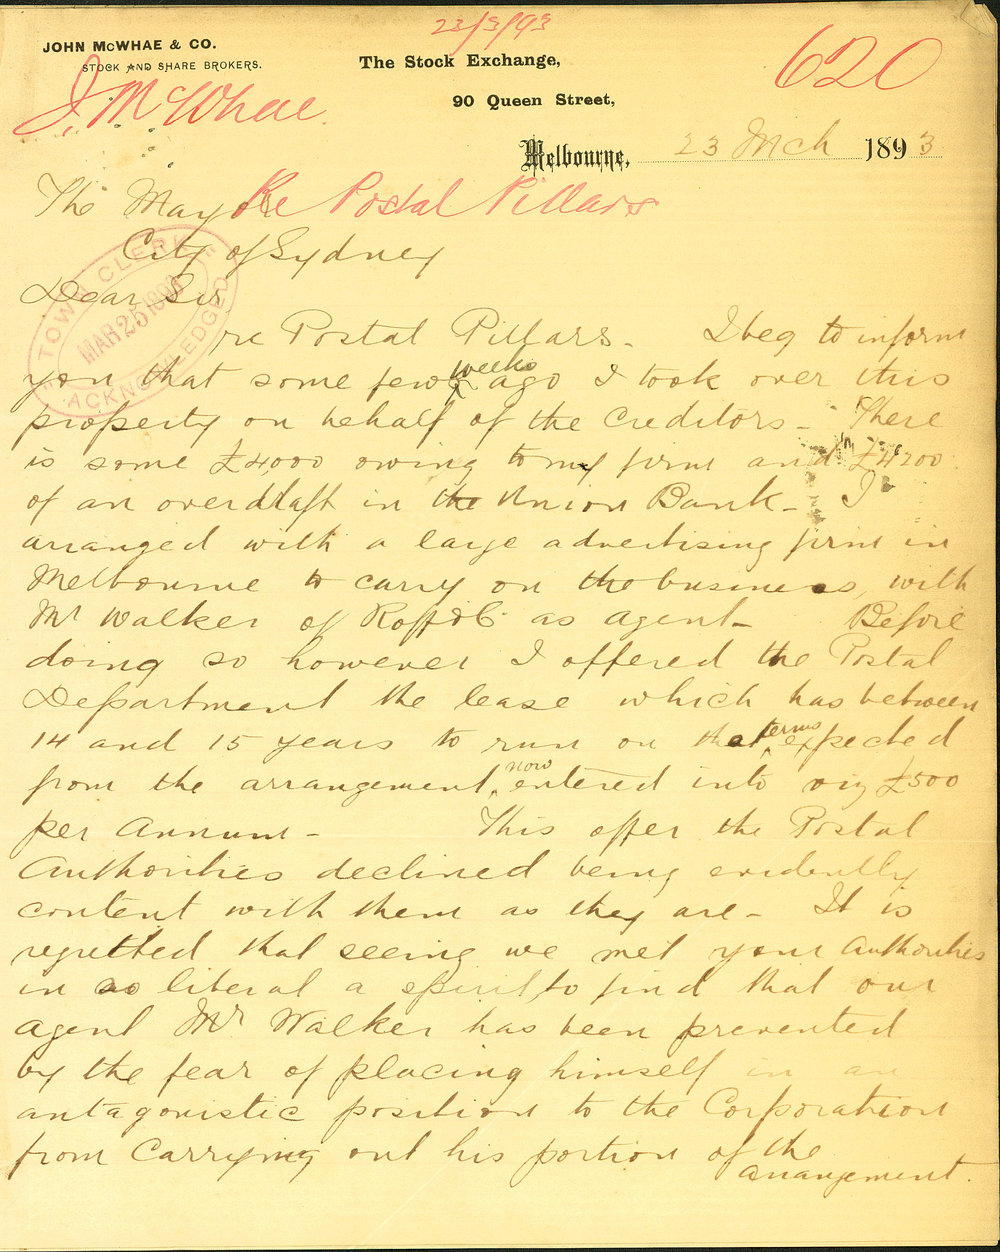 23/3/93
620
JOHN McWHAE & CO.
STOCK AND SHARE BROKERS.
J. McWhae.
The Stock Exchange,
90 Queen Street,
Melbourne, 23 Mch 1893
The Mayor
Re Postal Pillars
City of Sydney
"TOWN CLERK"
MAR 25 1893
ACKNOWLEDGED
Dear Sir
re Postal Pillars - I beg to inform
you that some few weeks ago I took over this
property on behalf of the Creditors - There
is some £4,000 owing to my firm and £4200
of an overdraft in the Union Bank - I
arranged with a large advertising firm in
Melbourne to carry on the business, with
Mr Walker of as agent - Before
doing so however I offered the Postal
Department the lease which has between
14 and 15 years to run on the terms expected
from the arrangement now entered into viz £500
per Annum - This offer the Postal
Authorities declined being evidently
content with them as they are - It is
regretted that seeing we met your Authorities
in so liberal a spirit, to find that our
agent Mr Walker has been prevented
by the fear of placing himself in an
antagonistic position to the Corporation
from Carrying out his portion of the
arrangement.